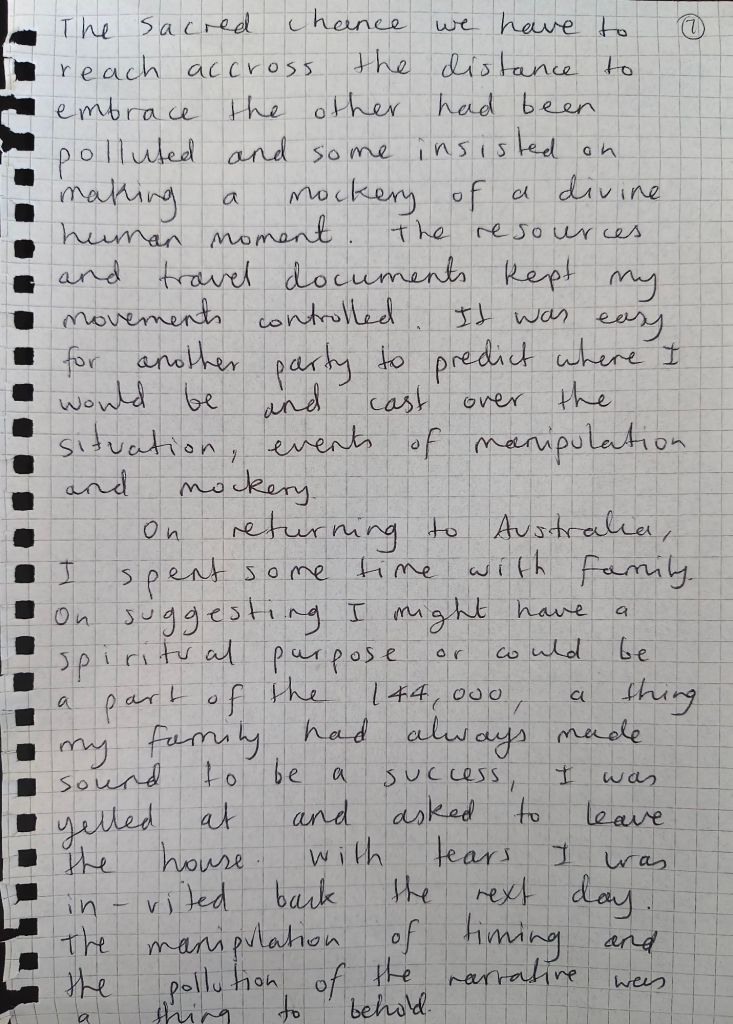 The sacred chance we have to ⑦
reach accross the distance to
embrace the other had been
polluted and some insisted on
making a mockery of a divine
human moment. The resources
and travel documents kept my
movements controlled. It was easy
for another party to predict where I
would be and cast over the
situation, events of manipulation
and mockery.
On returning to Australia,
I spent some time with family.
On suggesting I might have a
spiritual purpose or could be
a part of the 144,000, a thing
my family had always made
sound to be a success, I was
yelled at and asked to leave
the house. With tears I was
in-vited back the next day.
The manipulation of timing and
the pollution of the narrative was
a thing to behold.